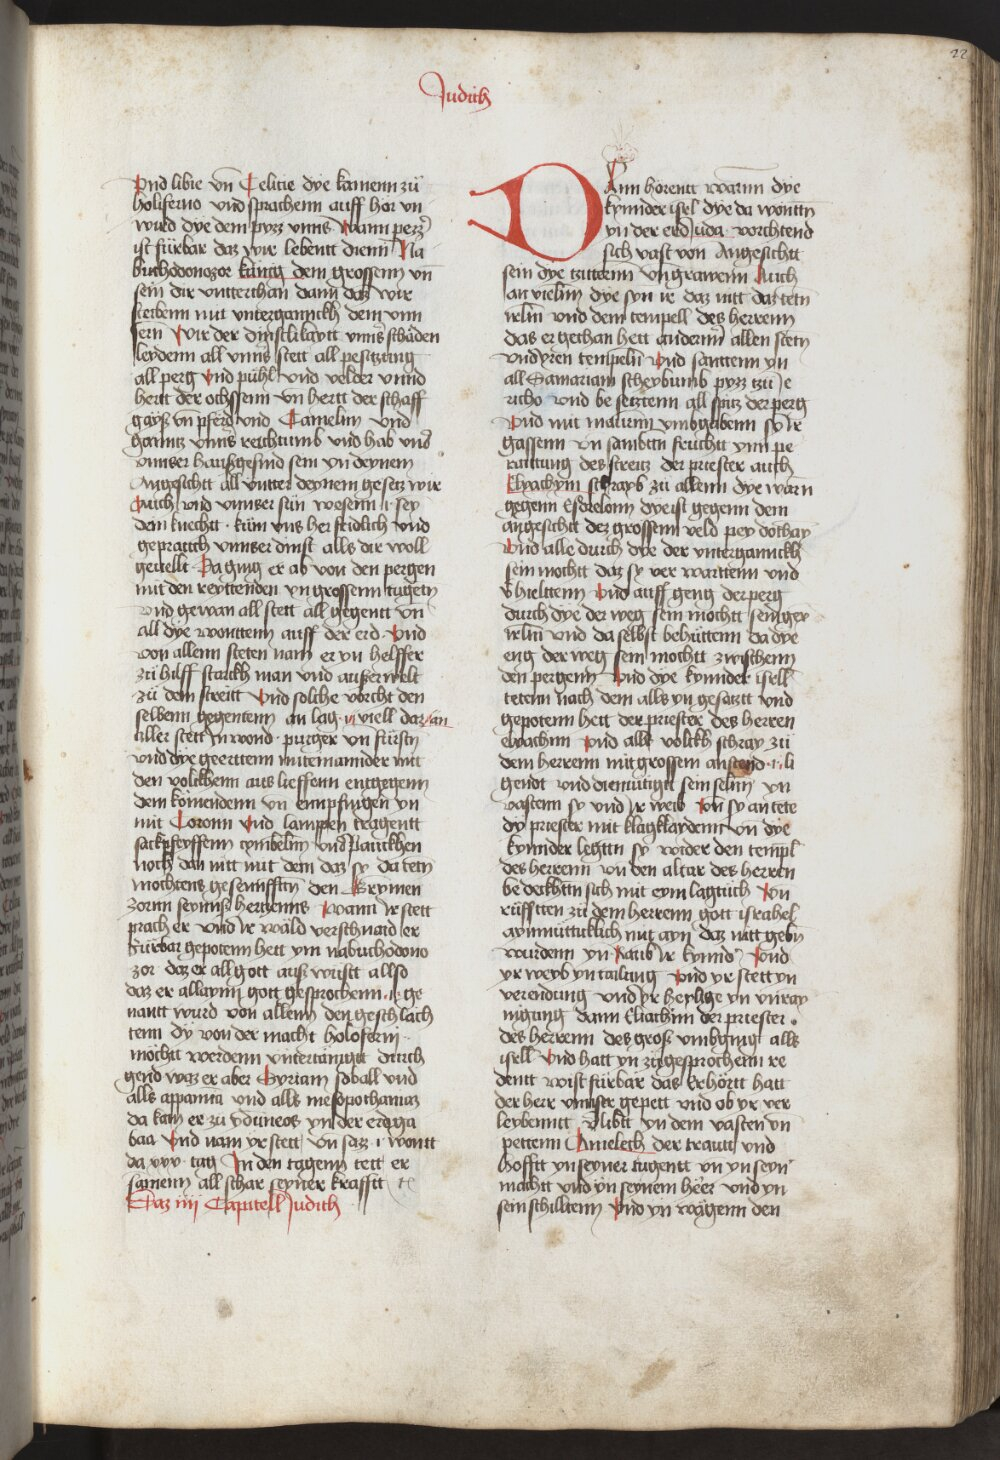 22
Judith
Vnd libie vn̄ Celicie dye kamenn zů
holiferno vnd sprachenn auff hör vn̄
wird dye dem pyzz vnnß wann pezz̄
ist fürbar daz wir lebentt dienn Na
buchodonozor künig dem grossenn vn̄
sein dir vntterthan dann daz wir
sterbenn mit vntergannckh dem vnn
sern̄ wir der dinstlikaytt vnnß schäden
leydenn all vnnß stett all pesitzung
all perg vnd pühl vnd velder vnnd
hertt der ochssenn vn̄ hertt der schaff
gayß vn̄ pferd vnd Camelin vnd
ganntz vnnß reichtumb vnd hab vnd
vnnser haußgesind sein yn deynem
Angesichtt all vntter deynem gesetz wir
Auch vnd vnnser sün wesenn · i · sey
dein knechtt · küm vns her fridlich vnd
geprauch vnnser dinst alls dir woll
geuellt · Da ging er ab von den pergen
mit den reyttenden yn grossenn tugetn̄
vnd gewan all stett all gegentt vn̄
all dye wonttenn auff der erd · Vnd
von allenn steten nam er yn helffer
zü hilff starckh man vnd außerwelt
zü dem streitt Vnd solche vorcht den
selbenn gegentenn an lag · vnd viell daz an
aller stett ynwond · purger vn̄ fürstn̄
vnd dye geerttenn miteinannder mit
den volckhenn aus lieffenn entgegenn
dem kömendenn vn̄ empfingen yn
mit Coronn Vnd lampen tragentt
sackpfeyffenn cymbelin̄ vnd Pauckhen
noch dan nitt mit dem daz sy da tetn̄
mochtens gesennfftn̄ den Grymen
zornn seyniß hertzenns wann ir stett
prach er vnd ir wäld verschnaid er
fürbar gepotenn hett ym nabuchodono
zor daz er all gott auß wüstt allso
daz er allaynn gott gesprochenn · i · ge
nantt wurd von allenn den geschläch
tenn dy von der macht holofernj ·
möchtt werdenn vntertänigtt durch
gend waz er aber Syriam soball vnd
alls appamia vnd alls mesopothamiaz
da kam er zů ydumeos yn der erd ga
baa Vnd nam yr stett vn̄ sazz · i · wontt
da xxx · tag In den tagenn tett er
samenn all schar seyner krafftt
Daz iiij Capitell Judith
Dann hörentt wann dye
kynnder isel dye da wonttn̄
yn der erd Juda · vorchtend
sich vast von Angesichtt
sein dye zitternn vn̄ grawenn Auch
an vielnn dye syn ir daz nitt daz tetn
irlm̄ vnd dem tempell des herrenn
das er gethan hett anderm̄ allen stetn
vnd yren tempeln̄ Vnd santtenn yn
all Samariam scheybumb pyzz tzü Je
richo vnd be setztenn all spitz der perg
Vnd mit maurnn vmbgäbenn sy ir
gassenn vn̄ sambttn̄ früchtt ynn pe
raittung des streitz der priester auch
Elyachym schrayb zü allenn dye warn
gegenn Esdrelonn dye ist gegenn dem
angesichtt dez grossenn veld pey dothayn
Vnd alle durch dye der vntergannckh
sein mochtt daz sy ver warttenn vnd
vhielttenn Vnd auff geng der perg
durch dye der weg sein möchtt sein gen
irlm̄ vnd da selbst behüttenn da dye
eng der weg sein mochtt zwischenn
den pergenn Vnd dye kynnder isell
tetenn nach dem alls yn gesatztt vnd
gepotenn hett der priester des herren
elyachim Vnd alls volckh schray zü
dem herrenn mit grossem anstend · i · li
gendt vnd diemütigtt sein seln̄ yn
vastenn sy vnd ir weib Vn̄ sy an tete
dy priester mit klagklaydenn vn̄ dye
kynnder legttn sy wider den templ
des herrenn vn̄ den altar des herren
be deckhttn sich mit eym lagtüch Vn̄
rüfftten zů dem herrenn gott israhel
aynmüttiklich mit ayn daz nitt gebn̄
wurdenn yn Raub ir kynnd Vnd
yr weyb yn tailung Vnd yr stett yn
verendung vnd yr heylige yn vnray
nigung dann Eliachim der priester ·
des herrenn des groß vmbging alls
isell Vnd hatt yn zügesprochenn re
dentt wist fürbar das Erhörtt hatt
der herr vnnser gepett vnd ob yr ver
leybenntt blibtt yn dem vasten vn̄
pettenn Amelech der trautt vnd
hofftt yn seyner tugentt vn̄ yn seyn̄
machtt vnd yn seynem heer vnd yn
sein schilltenn Vnd yn wägenn den